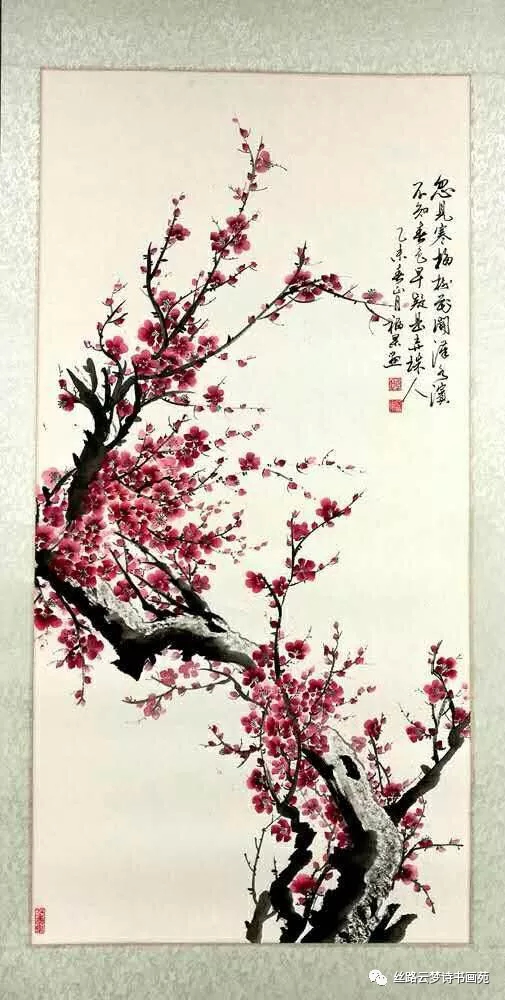 忽見寒梅樹花開漢水濱
不知春色早疑是弄珠人
乙未春月福画
丝路云梦诗书画苑